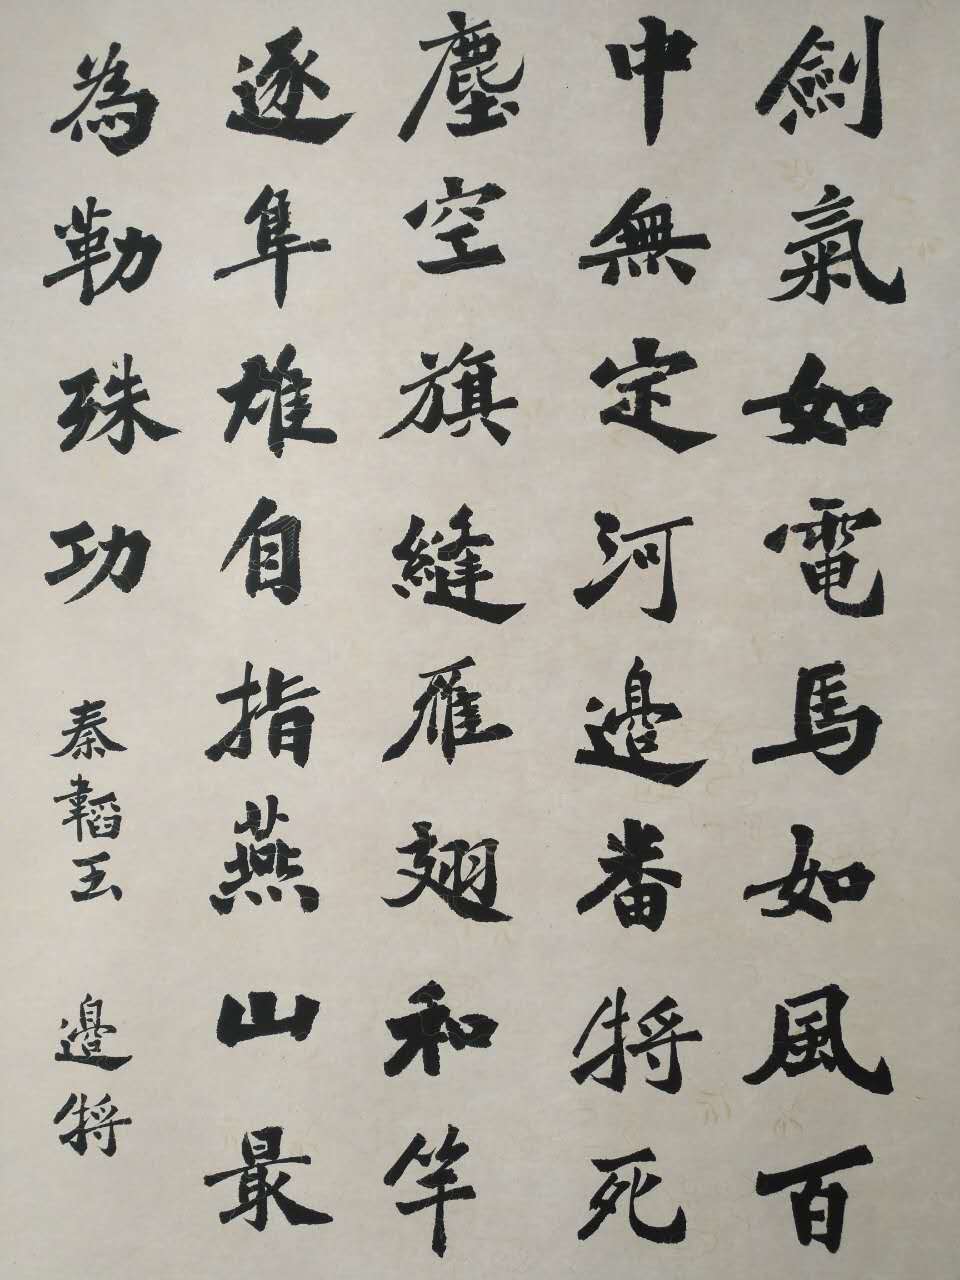 劍氣如電馬如風百
中無定河邊番將死
塵空旗縫雁翅和竿
逐隼雄自指燕山最
為勒殊功 秦韜玉 邊將